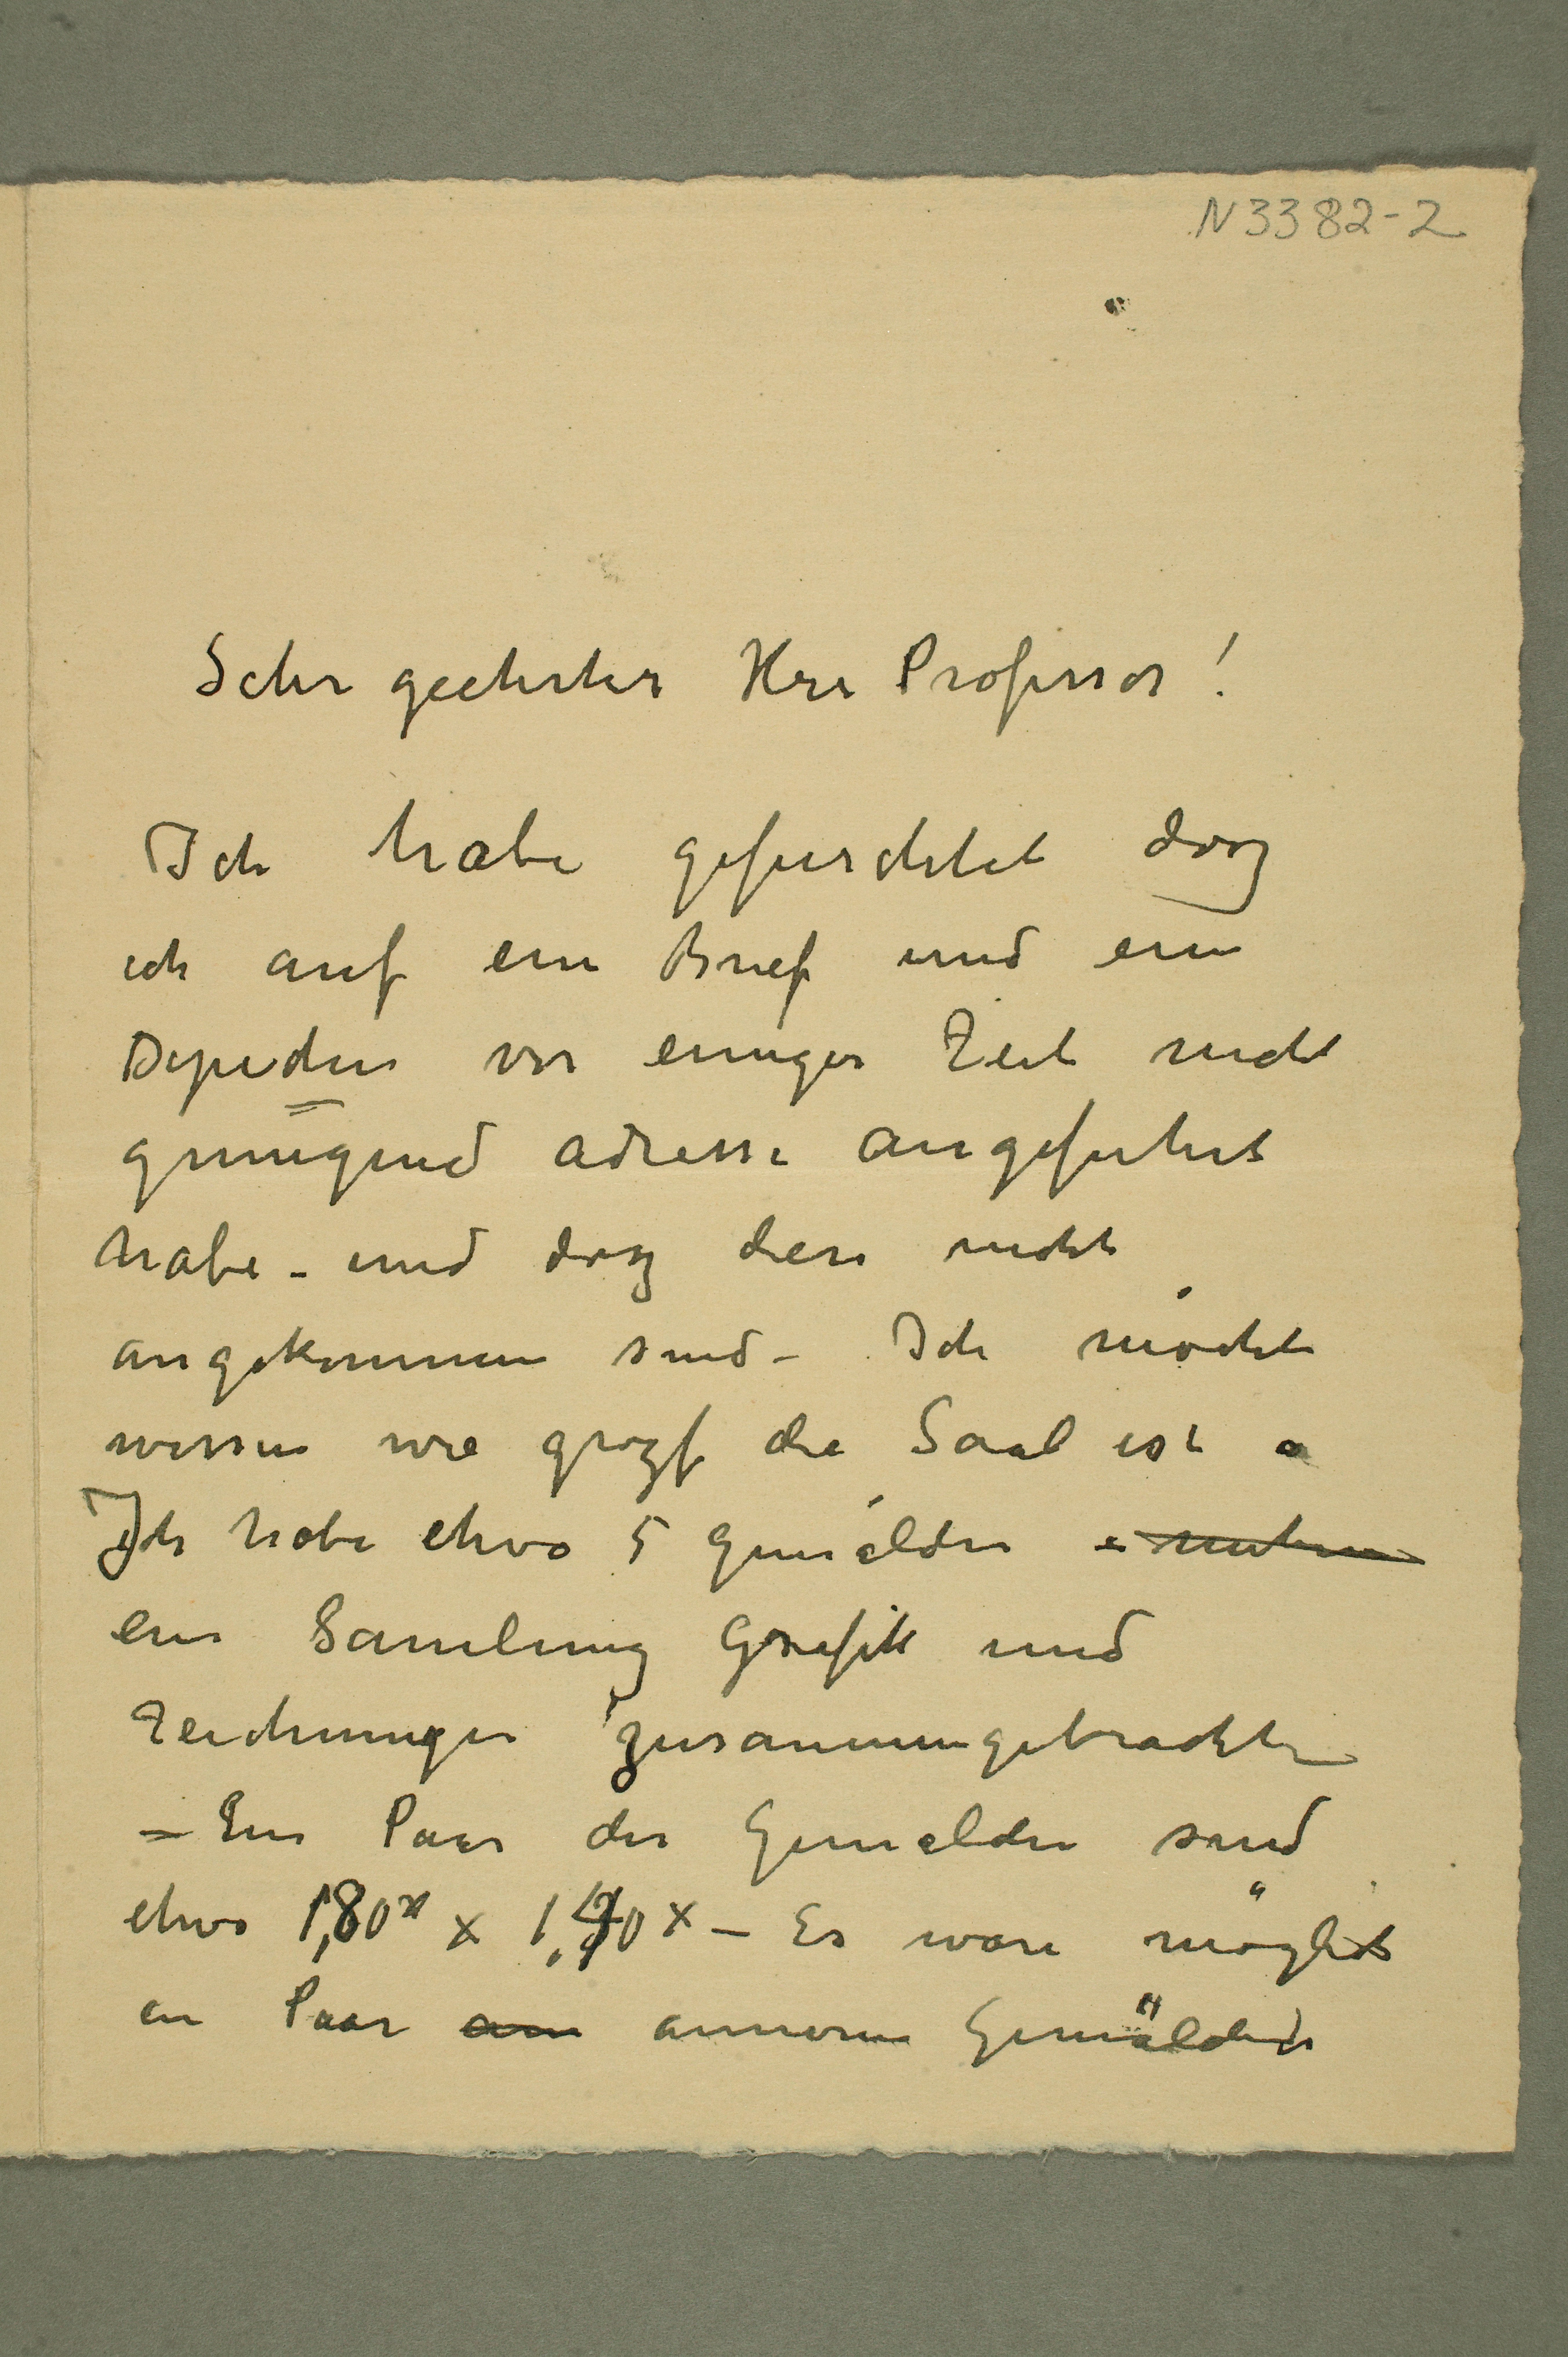 N 3382-2
Sehr geehrter Herr Professor!
Ich habe gefurchtet dasz
ich auf ein Brief und ein
Depechen vor einiger Zeit nicht
genugend adresse angefuhrt
habe – und dasz diese nicht
angekommen sind – Ich möchte
wissen wie grosz die Saal ist
Ich habe etwa 5 Gemälden
ein Samlung Grafik und
Zeichnungen zusammengebracht
– Ein Paar der Gemälden sind
etwa 1,80 x – Es wäre möglich
en Paar anneren Gemälden